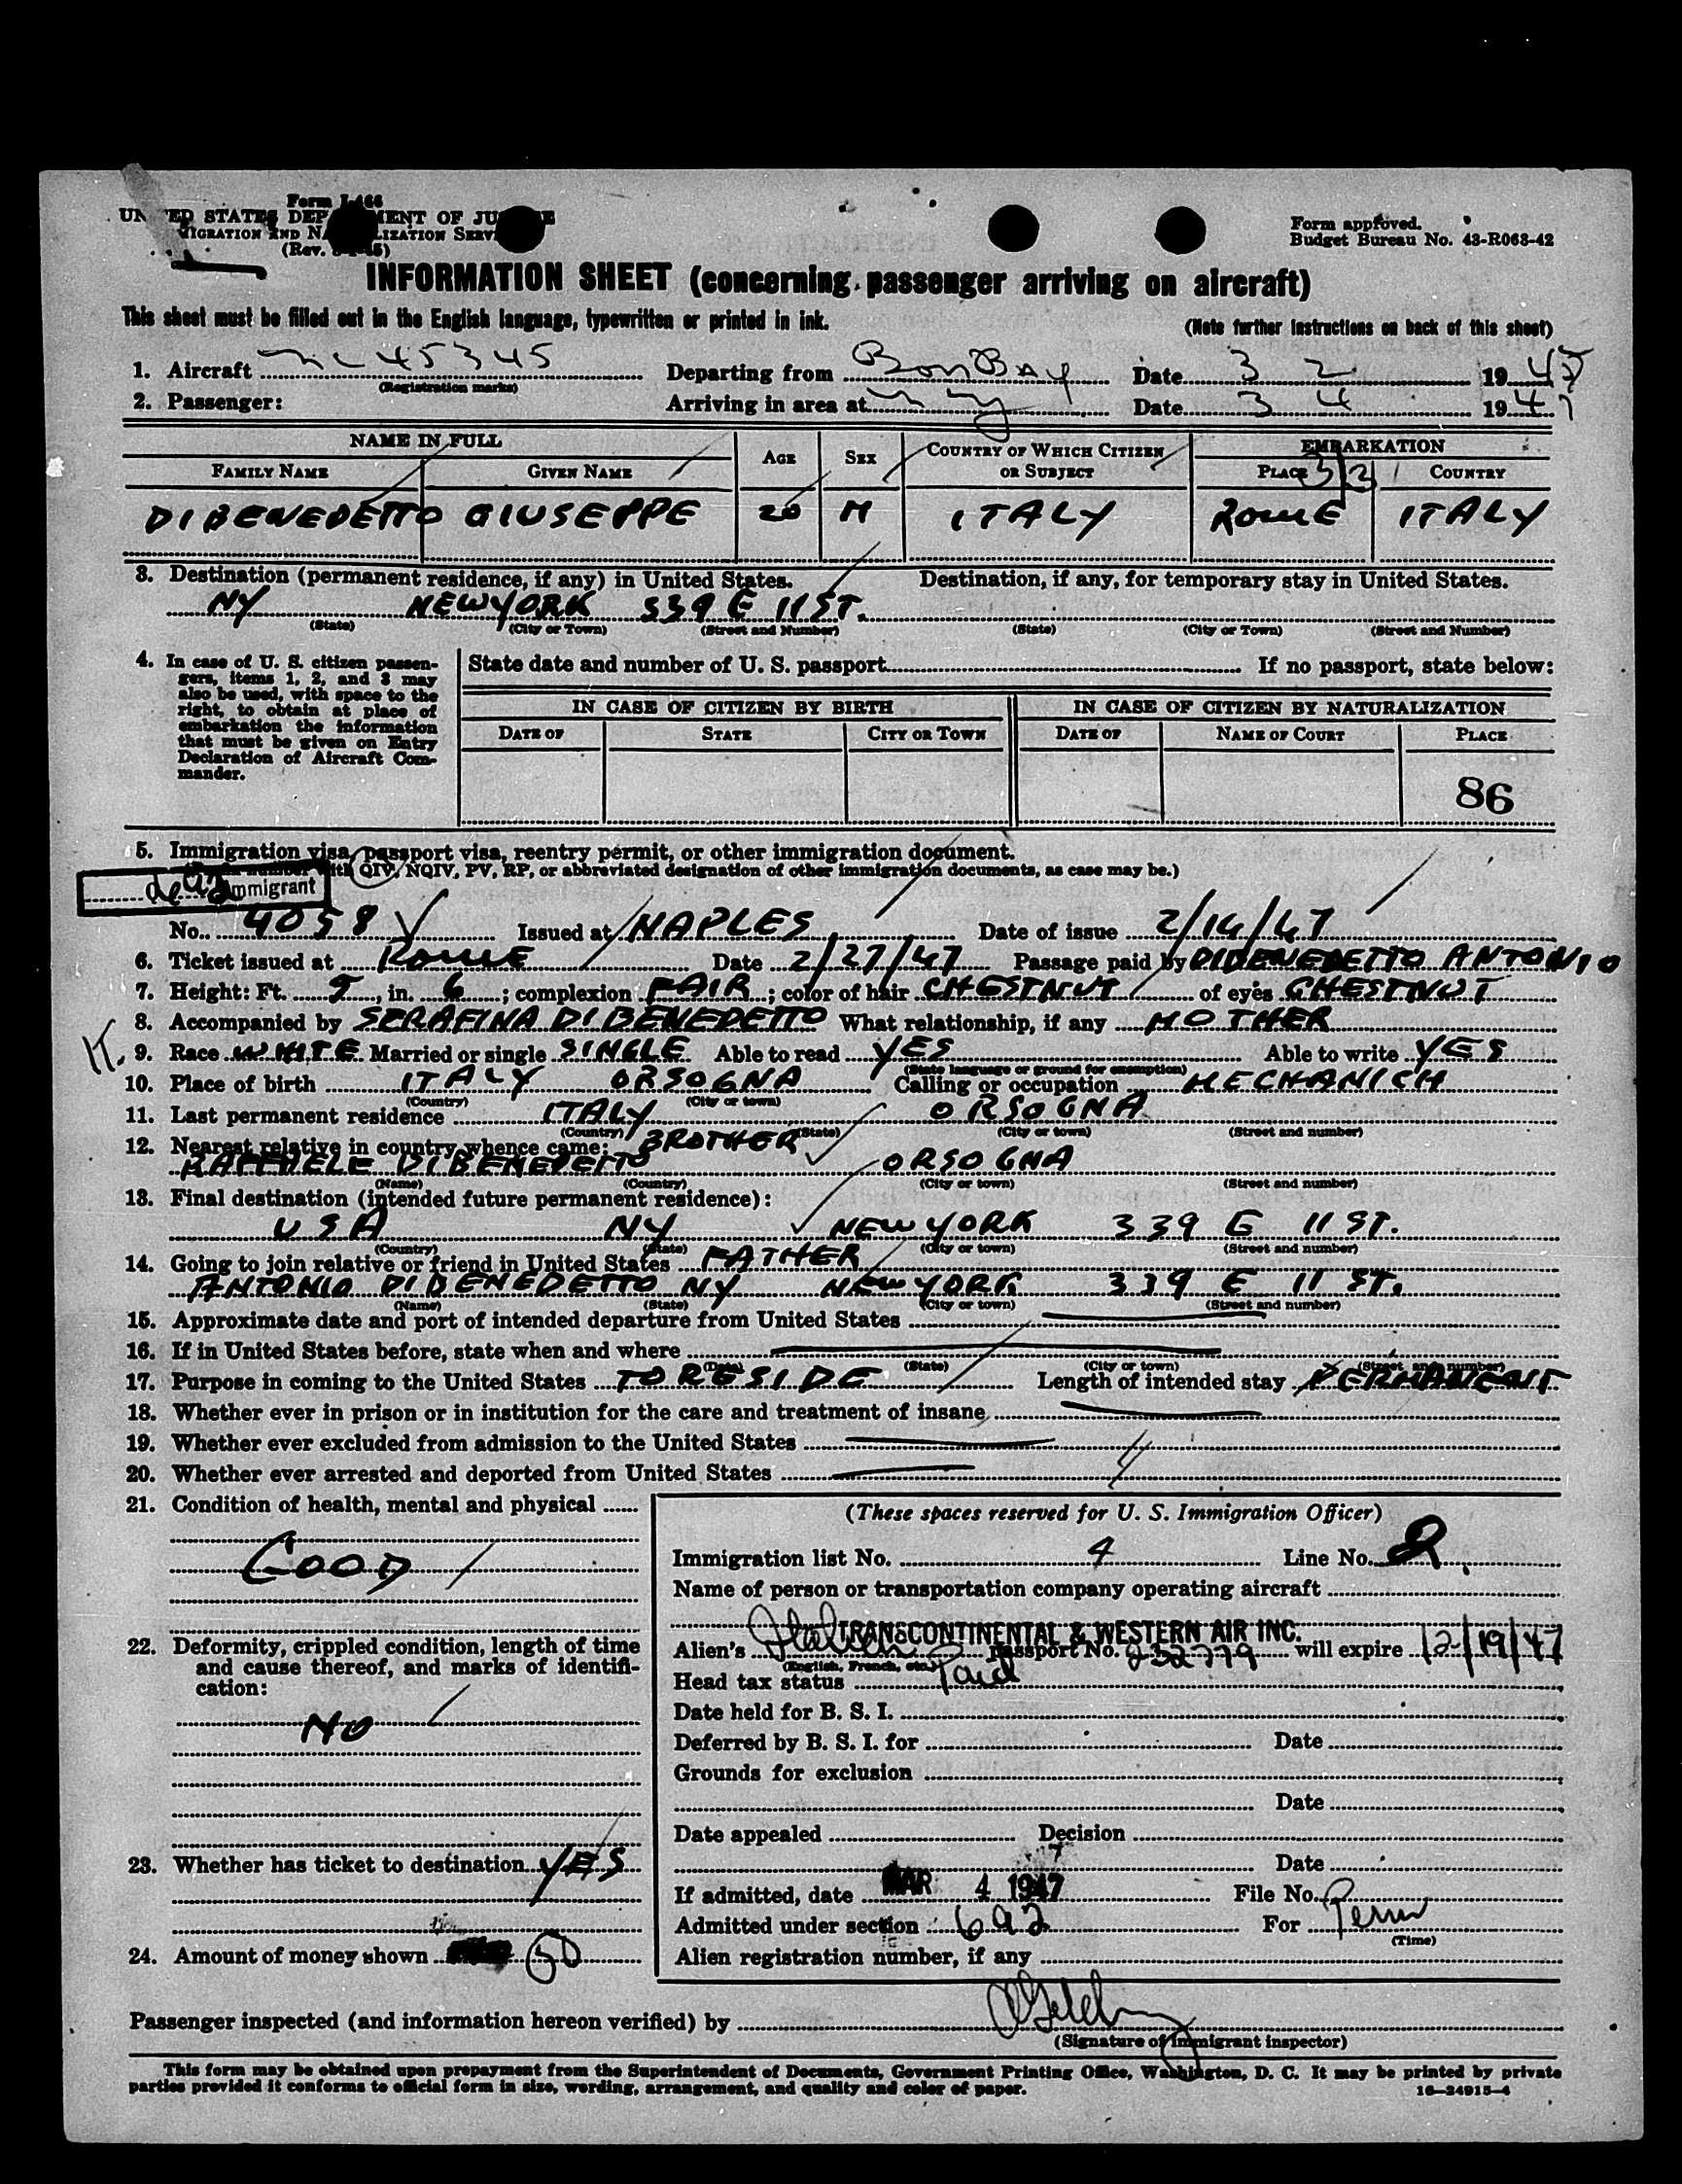 Form I-466
UNITED STATES DEPARTMENT OF JUSTICE
IMMIGRATION AND NATURALIZATION SERVICE
(Rev.
Form approved.
Budget Bureau No. 43-R063-42
INFORMATION SHEET (concerning passenger arriving on aircraft)
This sheet must be filled out in the English language, typewritten or printed in ink.
(Note further instructions on back of this sheet)
1. Aircraft NC 45345 Departing from BomBay Date 3 2 1947
(Registration marks)
2. Passenger: Arriving in area at NY Date 3 4 1947
NAME IN FULL AGE SEX COUNTRY OF WHICH CITIZEN OR SUBJECT EMBARKATION
FAMILY NAME GIVEN NAME PLACE 3/2 COUNTRY
DIBENEDETTO GIUSEPPE 20 M ITALY ROME ITALY
3. Destination (permanent residence, if any) in United States. Destination, if any, for temporary stay in United States.
NY NEW YORK 339 E 11 ST.
(State) (City or Town) (Street and Number) (State) (City or Town) (Street and Number)
4. In case of U. S. citizen passen-
gers, items 1, 2, and 3 may
also be used, with space to the
right, to obtain at place of
embarkation the information
that must be given on Entry
Declaration of Aircraft Com-
mander.
State date and number of U. S. passport If no passport, state below:
IN CASE OF CITIZEN BY BIRTH IN CASE OF CITIZEN BY NATURALIZATION
DATE OF STATE CITY OR TOWN DATE OF NAME OF COURT PLACE
86
5. Immigration visa, passport visa, reentry permit, or other immigration document.
number with QIV, NQIV, PV, RP, or abbreviated designation of other immigration documents, as case may be.)
immigrant
No. 4058 Issued at NAPLES Date of issue 2/14/47
6. Ticket issued at ROME Date 2/27/47 Passage paid by DIBENEDETTO ANTONIO
7. Height: Ft. 5, in. 6; complexion FAIR; color of hair CHESTNUT of eyes CHESTNUT
8. Accompanied by SERAFINA DI BENEDETTO What relationship, if any MOTHER
9. Race WHITE Married or single SINGLE Able to read YES Able to write YES
(State language or ground for exemption)
10. Place of birth ITALY ORSOGNA Calling or occupation MECHANICH
(Country) (City or town)
11. Last permanent residence ITALY ORSOGNA
(Country) (State) (City or town) (Street and number)
12. Nearest relative in country whence came: BROTHER
RAFFAELE DI BENEDETTO ORSOGNA
(Name) (Country) (City or town) (Street and number)
13. Final destination (intended future permanent residence):
USA NY NEW YORK 339 E 11 ST.
(Country) (State) (City or town) (Street and number)
14. Going to join relative or friend in United States FATHER
ANTONIO DI BENEDETTO NY NEW YORK 339 E 11 ST.
(Name) (State) (City or town) (Street and number)
15. Approximate date and port of intended departure from United States
16. If in United States before, state when and where
(Date) (State) (City or town) (Street and number)
17. Purpose in coming to the United States TO RESIDE Length of intended stay PERMANENT
18. Whether ever in prison or in institution for the care and treatment of insane
19. Whether ever excluded from admission to the United States
20. Whether ever arrested and deported from United States
21. Condition of health, mental and physical
GOOD
22. Deformity, crippled condition, length of time
and cause thereof, and marks of identifi-
cation:
NO
23. Whether has ticket to destination YES
24. Amount of money shown 50
(These spaces reserved for U. S. Immigration Officer)
Immigration list No. 4 Line No. 2
Name of person or transportation company operating aircraft
TRANSCONTINENTAL & WESTERN AIR INC.
Alien's Italian Passport No. 232779 will expire 12/19/47
(English, French, etc.)
Head tax status Paid
Date held for B. S. I.
Deferred by B. S. I. for Date
Grounds for exclusion
Date
Date appealed Decision
Date
If admitted, date MAR 4 1947 File No.
Admitted under section 6a2 For Perm
(Time)
Alien registration number, if any
Passenger inspected (and information hereon verified) by
(Signature of immigrant inspector)
This form may be obtained upon prepayment from the Superintendent of Documents, Government Printing Office, Washington, D. C. It may be printed by private
parties provided it conforms to official form in size, wording, arrangement, and quality and color of paper.
16—24915-4